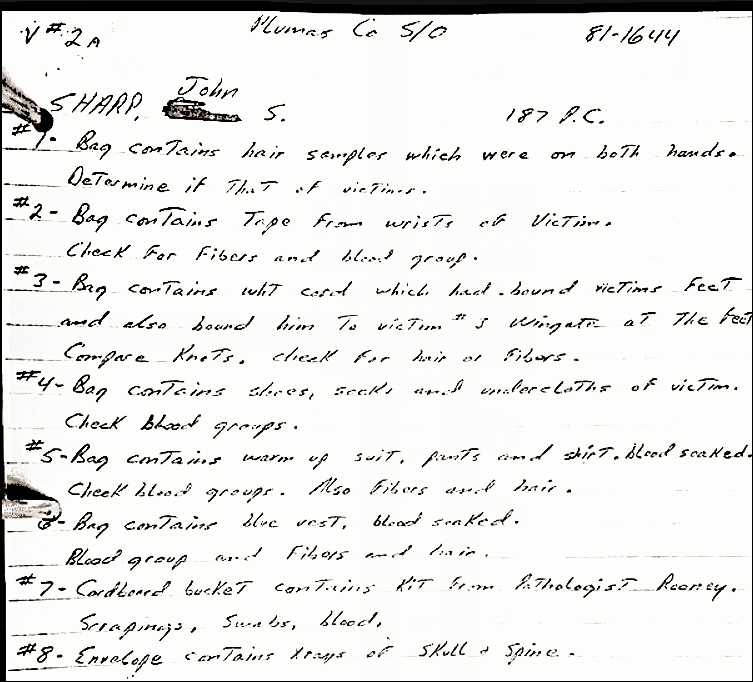 V#2A Plumas Co S/O 81-1644
John
SHARP, S. 187 P.C.
#1- Bag contains hair samples which were on both hands.
Determine if that of victims.
#2- Bag contains Tape from wrists of Victim.
Check for Fibers and blood group.
#3- Bag contains wht cord which had bound victims Feet
and also bound him To victim #3 Wingate at The feet
Compare Knots. check For hair or Fibers.
#4- Bag contains shoes, socks and undercloths of victim.
Check blood groups.
#5- Bag contains warm up suit, pants and shirt. blood soaked.
Check blood groups. Also Fibers and hair.
6- Bag contains blue vest, blood soaked.
Blood group and Fibers and hair.
#7- Cardboard bucket contains Kit From Pathologist Rooney.
Scrapings, Swabs, blood,
#8- Envelope contains xrays of Skull & Spine.